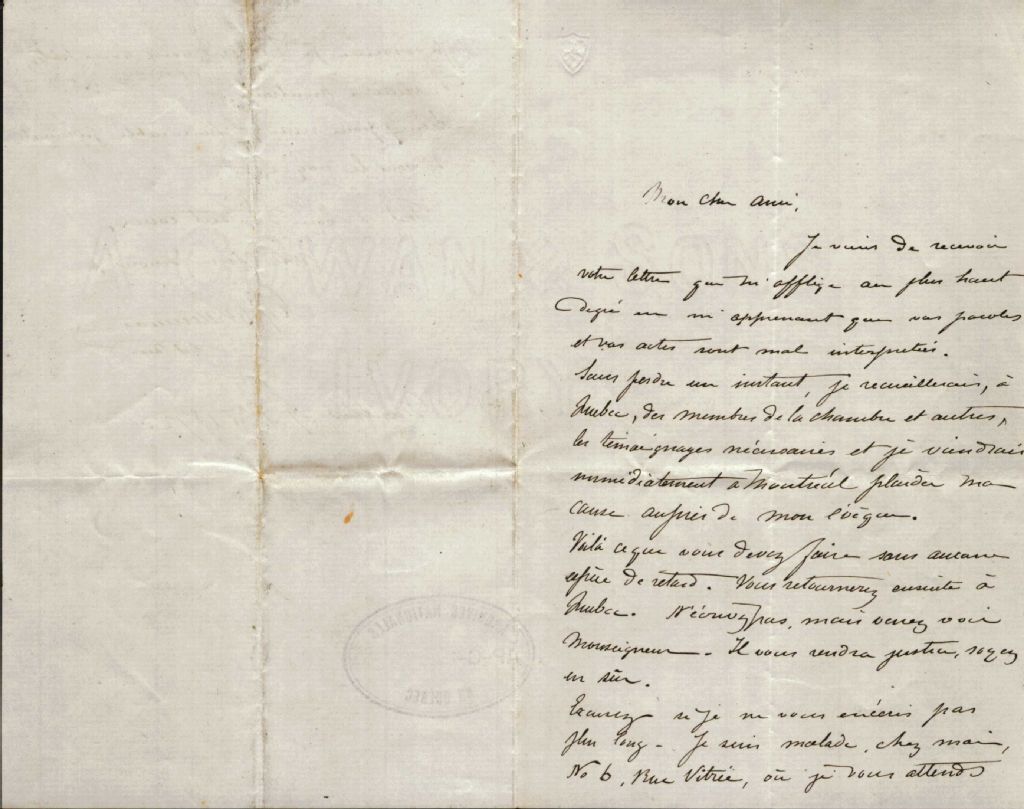 Mon cher ami,
Je viens de recevoir
votre lettre qui m'afflige au plus haut
degré en m'apprenant que vos paroles
et vos actes sont mal interpretés.
Sans perdre un instant, je recueillerais, à
Québec, des membres de la chambre et autres,
les témoignages nécessaires et je viendrais
immédiatement à Montréal plaider ma
cause auprès de mon évêque.
Voilà ce que vous devez faire sans aucune
espèce de retard. Vous retournerez ensuite à
Québec. N'écrivez pas, mais venez voir
Monseigneur. Il vous rendra justice, soyez
en sûr.
Excusez si je ne vous écris pas
plus long. Je suis malade, chez moi,
No 6, Rue Vitrée, où je vous attends
ARCHIVES NATIONALES
DU QUÉBEC